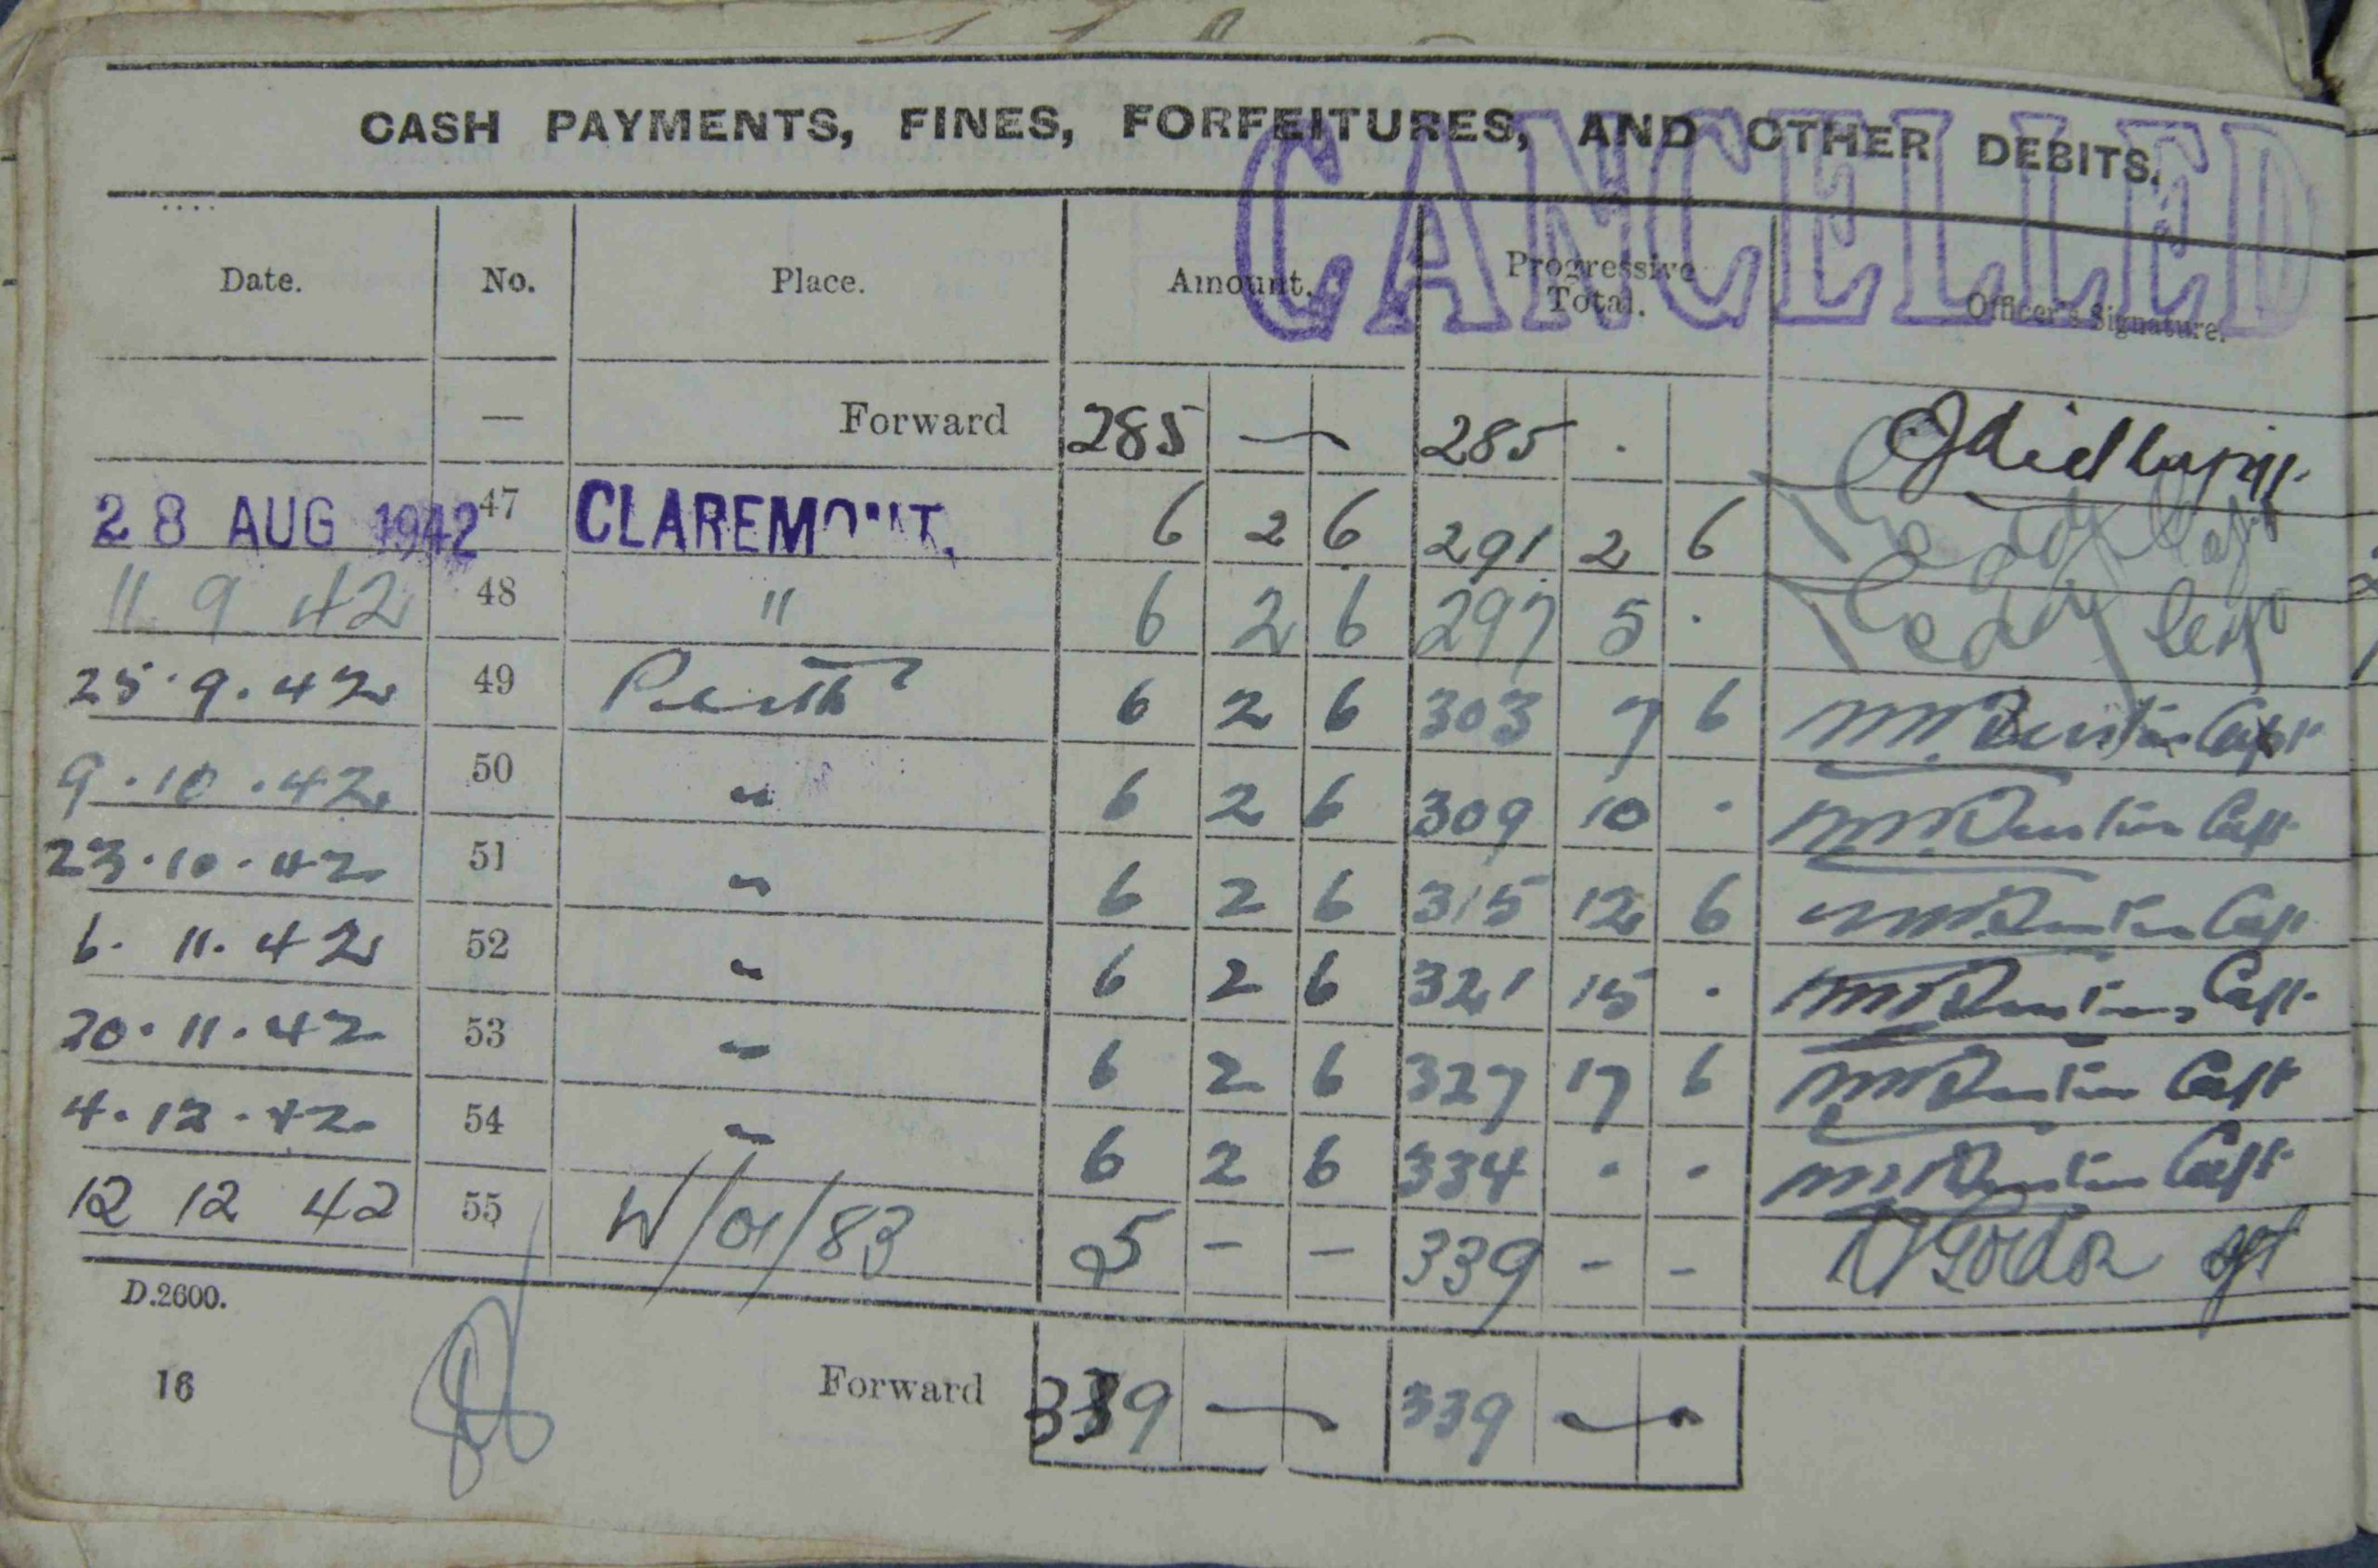 CASH PAYMENTS, FINES, FORFEITURES, AND OTHER DEBITS.
CANCELLED
Date. No. Place. Amount. Progressive Total. Officer's Signature.
— Forward 285 — 285 .
28 AUG 1942 47 CLAREMONT. 6 2 6 291 2 6 Capt
11 9 42 48 " 6 2 6 297 5 . Capt
25.9.42 49 Perth 6 2 6 303 7 6 Capt
9.10.42 50 " 6 2 6 309 10 . Capt
23.10.42 51 " 6 2 6 315 12 6 Capt
6.11.42 52 " 6 2 6 321 15 . Capt
20.11.42 53 " 6 2 6 327 17 6 Capt
4.12.42 54 " 6 2 6 334 . . Capt
12 12 42 55 W/01/83 5 - - 339 - -
D.2600.
16 Forward 339 — 339 —